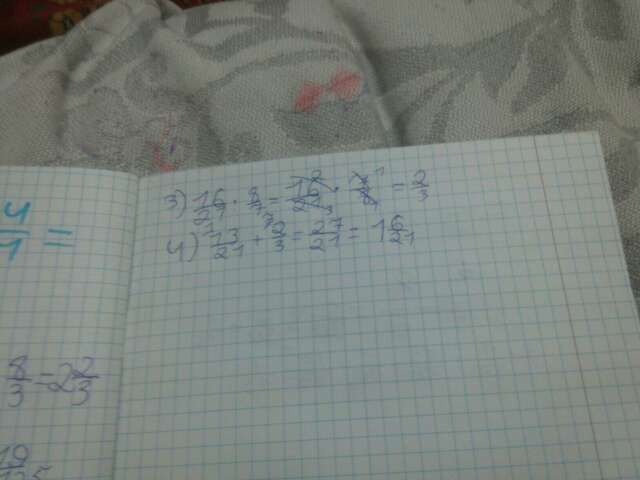 4/7 =
8/3 = 2 2/3
3) 16/21 : 8/7 = 16/21 · 7/8 = 2/3
4) 13/21 + 2/3 = 27/21 = 1 6/21